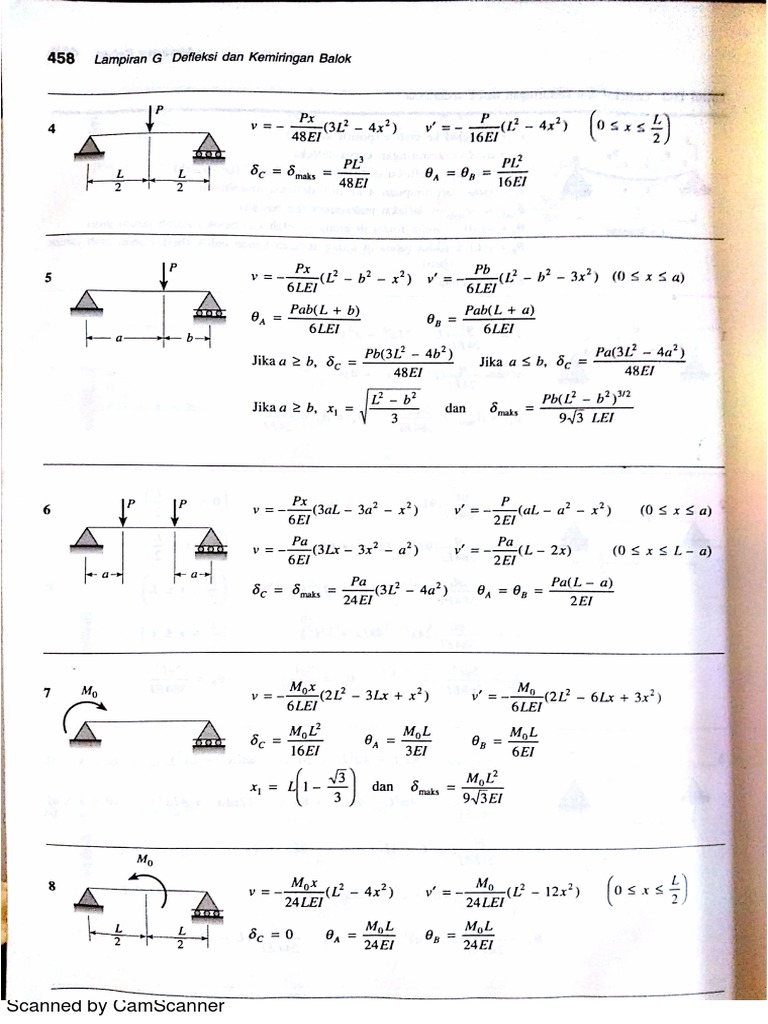 458 Lampiran G Defleksi dan Kemiringan Balok
4
P
L/2 L/2
v = − Px/48EI (3L² − 4x²) v′ = − P/16EI (L² − 4x²) (0 ≤ x ≤ L/2)
δ_C = δ_maks = PL³/48EI θ_A = θ_B = PL²/16EI
5
P
a b
v = − Px/6LEI (L² − b² − x²) v′ = − Pb/6LEI (L² − b² − 3x²) (0 ≤ x ≤ a)
θ_A = Pab(L + b)/6LEI θ_B = Pab(L + a)/6LEI
Jika a ≥ b, δ_C = Pb(3L² − 4b²)/48EI Jika a ≤ b, δ_C = Pa(3L² − 4a²)/48EI
Jika a ≥ b, x₁ = √((L² − b²)/3) dan δ_maks = Pb(L² − b²)^3/2 / 9√3 LEI
6
P P
a a
v = − Px/6EI (3aL − 3a² − x²) v′ = − P/2EI (aL − a² − x²) (0 ≤ x ≤ a)
v = − Pa/6EI (3Lx − 3x² − a²) v′ = − Pa/2EI (L − 2x) (0 ≤ x ≤ L − a)
δ_C = δ_maks = Pa/24EI (3L² − 4a²) θ_A = θ_B = Pa(L − a)/2EI
7
M₀
v = − M₀x/6LEI (2L² − 3Lx + x²) v′ = − M₀/6LEI (2L² − 6Lx + 3x²)
δ_C = M₀L²/16EI θ_A = M₀L/3EI θ_B = M₀L/6EI
x₁ = L(1 − √3/3) dan δ_maks = M₀L²/9√3EI
8
M₀
L/2 L/2
v = − M₀x/24LEI (L² − 4x²) v′ = − M₀/24LEI (L² − 12x²) (0 ≤ x ≤ L/2)
δ_C = 0 θ_A = M₀L/24EI θ_B = M₀L/24EI
Scanned by CamScanner